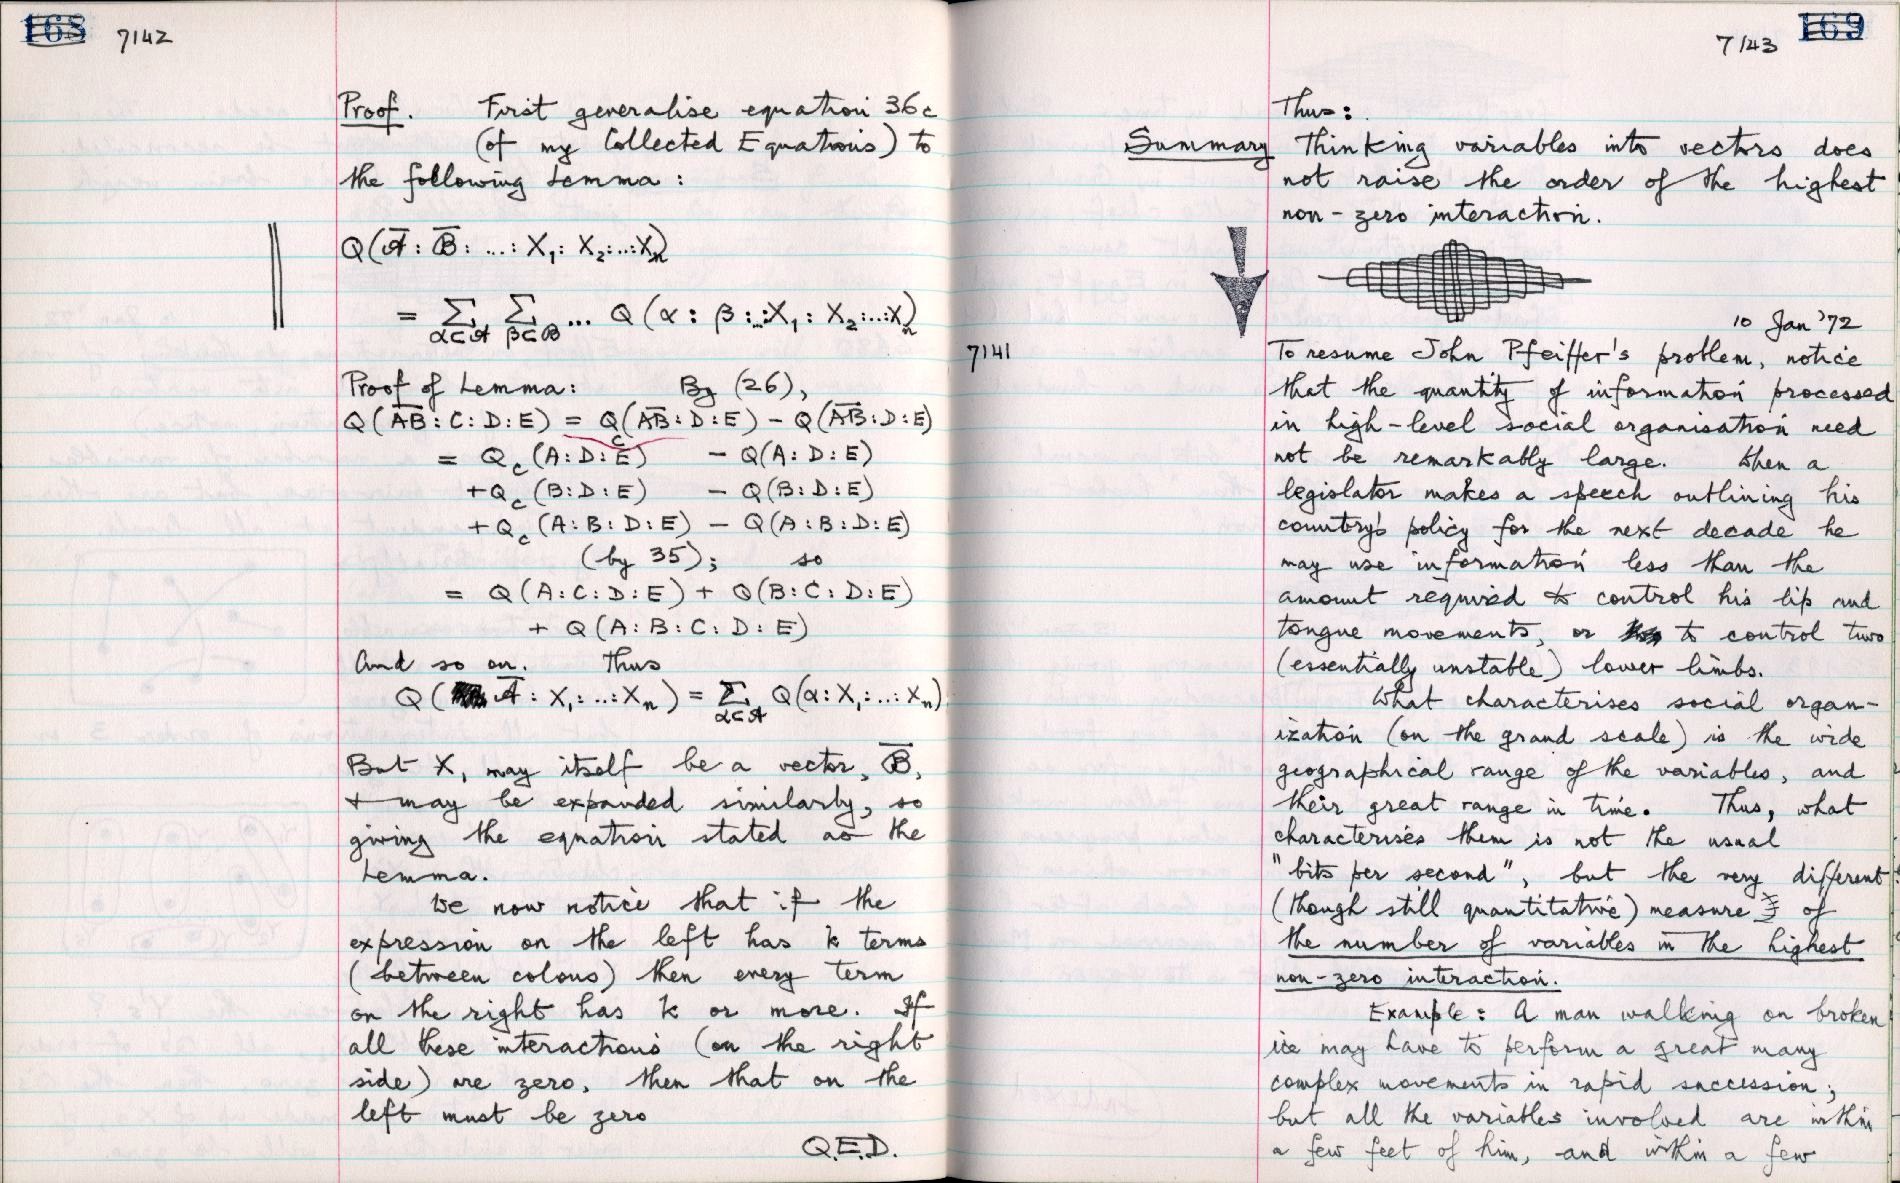 168 7142
Proof. First generalise equation 36c
(of my Collected Equations) to
the following Lemma:
Q(A̅ : B̅ : ... : X₁ : X₂ : ... : Xₙ)
= Σ Σ ... Q(α : β : ... : X₁ : X₂ : ... : Xₙ)
α⊂A β⊂B
Proof of Lemma: By (26),
Q(A̅B̅ : C : D : E) = Q_C(A̅B̅ : D : E) − Q(A̅B̅ : D : E)
= Q_C(A : D : E) − Q(A : D : E)
+ Q_C(B : D : E) − Q(B : D : E)
+ Q_C(A : B : D : E) − Q(A : B : D : E)
(by 35); so
= Q(A : C : D : E) + Q(B : C : D : E)
+ Q(A : B : C : D : E)
And so on. Thus
Q(A̅ : X₁ : ... : Xₙ) = Σ Q(α : X₁ : ... : Xₙ)
α⊂A
But X₁ may itself be a vector, B̅,
+ may be expanded similarly, so
giving the equation stated as the
Lemma.
We now notice that if the
expression on the left has k terms
(between colons) then every term
on the right has k or more. If
all these interactions (on the right
side) are zero, then that on the
left must be zero
Q.E.D.
7143 169
Thus:
Summary Thinking variables into vectors does
not raise the order of the highest
non-zero interaction.
10 Jan '72
7141 To resume John Pfeiffer's problem, notice
that the quantity of information processed
in high-level social organisation need
not be remarkably large. When a
legislator makes a speech outlining his
country's policy for the next decade he
may use information less than the
amount required to control his lip and
tongue movements, or to control two
(essentially unstable) lower limbs.
What characterises social organ-
ization (on the grand scale) is the wide
geographical range of the variables, and
their great range in time. Thus, what
characterises them is not the usual
"bits per second", but the very different
(though still quantitative) measure of
the number of variables in the highest
non-zero interaction.
Example: A man walking on broken
ice may have to perform a great many
complex movements in rapid succession;
but all the variables involved are within
a few feet of him, and within a few